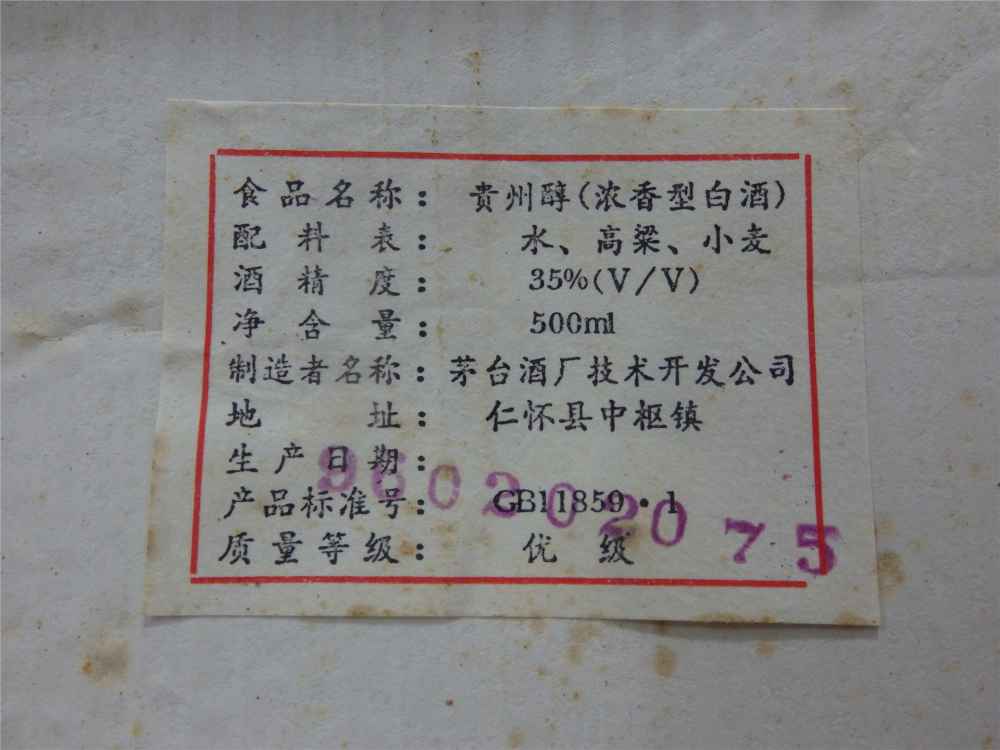 食品名称： 贵州醇(浓香型白酒)
配料表： 水、高粱、小麦
酒精度： 35%(V/V)
净含量： 500ml
制造者名称：茅台酒厂技术开发公司
地址： 仁怀县中枢镇
生产日期：
9602202075
产品标准号： GB11859·1
质量等级： 优级